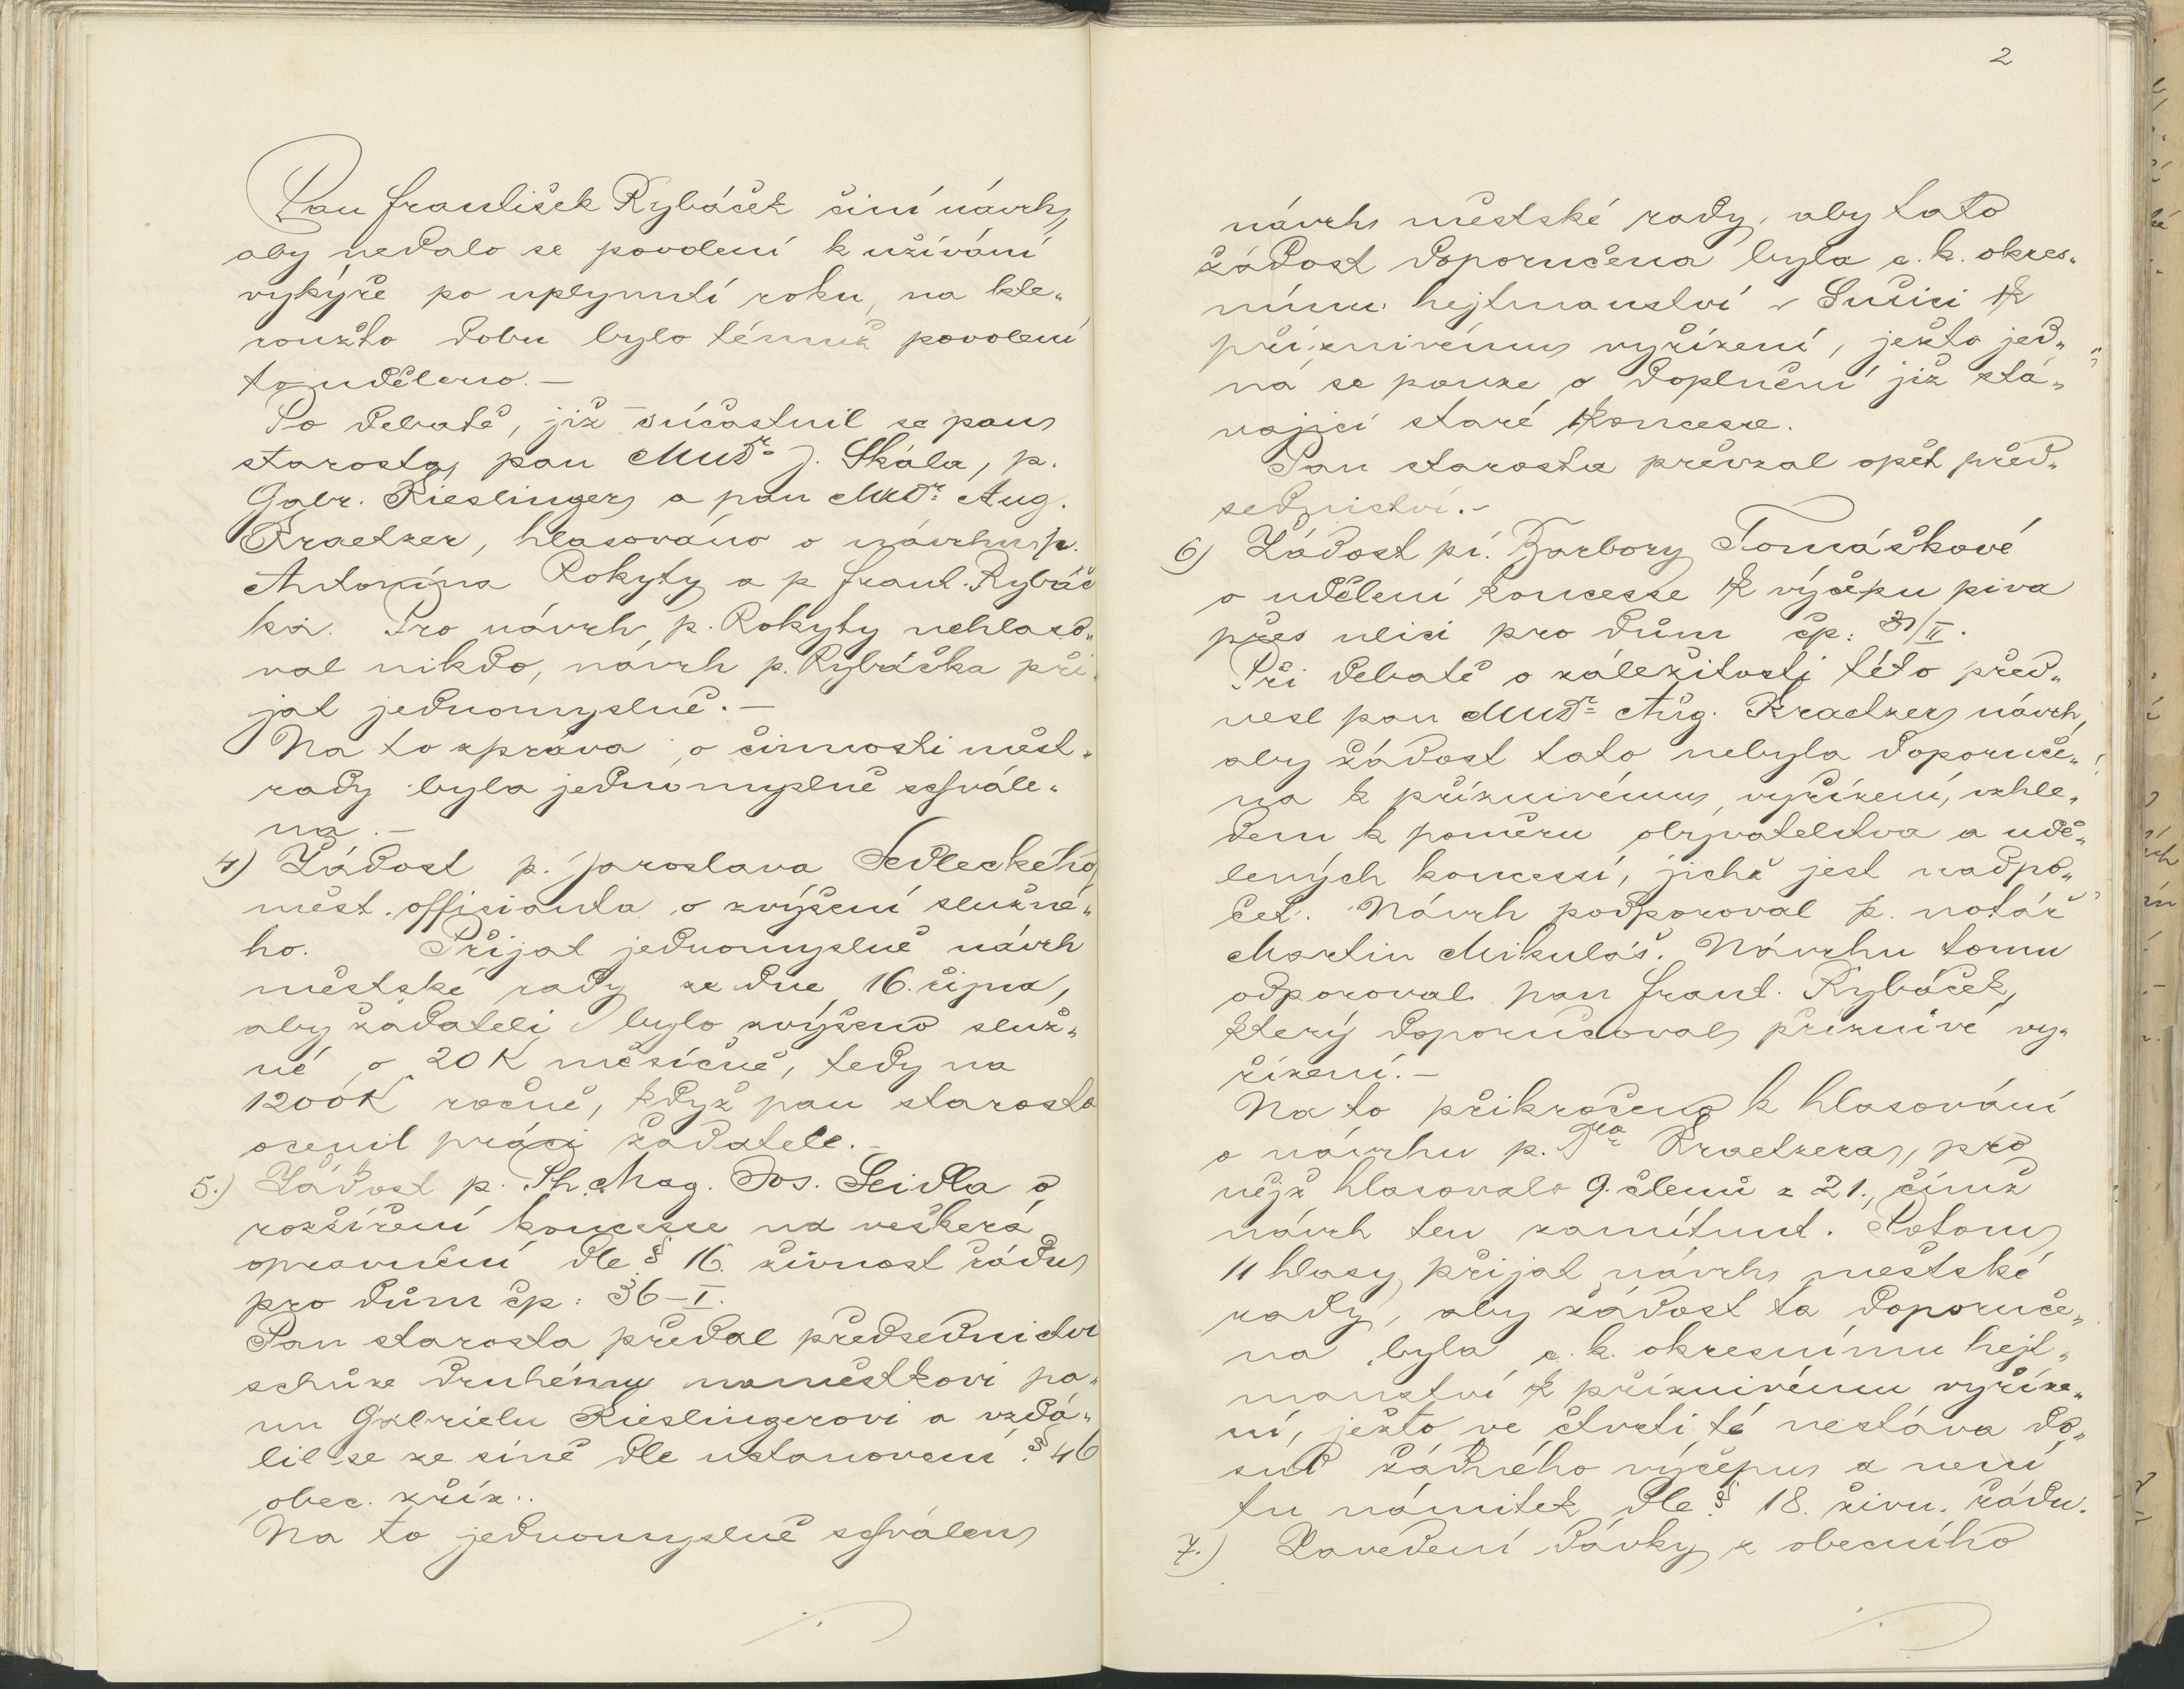 Pan František Rybáček činí návrh,
aby nedalo se povolení k užívání
vykýře po uplynutí roku, na kte„
roužto dobu bylo témuž povolení
to uděleno. —
Po debatě, jíž súčastnil se pan
starosta, pan MUDr. J. Skála, p.
Gabr. Kieslinger a pan MUDr. Aug.
Kraetzer, hlasováno o návrhu p.
Antonína Rokyty a p frant. Rybáč
ka. Pro návrh p. Rokyty nehlaso„
val nikdo, návrh p. Rybáčka při„
jat jednomyslně. —
Na to zpráva o činnosti měst„
rady byla jednomyslně schvále„
na. —
4) Žádost p. Jaroslava Sedleckého
měst. officianta o zvýšení služné„
ho. Přijat jednomyslně návrh
městské rady ze dne 16. října,
aby žadateli bylo zvýšeno služ„
né o 20 K měsíčně, tedy na
1200 K ročně, když pan starosta
ocenil práci žadatele. —
5.) Žádost p. Ph. Mag. Jos. Seidla o
rozšíření koncesse na veškerá
oprávnění dle § 16. živnost řádu
pro dům čp: 36-I.
Pan starosta předal předsednictví
schůze druhému náměstkovi pa„
nu Gabrielu Kieslingerovi a vzdá„
lil se ze síně dle ustanovení § 46
obec. zříz..
Na to jednomyslně schválen
2
návrh městské rady, aby tato
žádost doporučena byla c. k. okres„
nímu hejtmanství v Sušici k
příznivému vyřízení, ježto jed„
ná se pouze o doplnění již stá„
vající staré koncesse.
Pan starosta převzal opět před„
sednictví. —
6) Žádost pí. Barbory Tomáškové
o udělení koncesse k výčepu piva
přes ulici pro dům čp: 31/II.
Při debatě o záležitosti této před„
nesl pan MUDr. Aug. Kraetzer návrh,
aby žádost tato nebyla doporuče„
na k příznivému vyřízení, vzhle„
dem k poměru obyvatelstva a udě„
lených koncessí, jichž jest nadpo„
čet. Návrh podporoval p. notář
Martin Mikuláš. Návrhu tomu
odporoval pan frant. Rybáček,
který doporučoval příznivé vy„
řízení. —
Na to přikročeno k hlasování
o návrhu p. Dra Kraetzera, pro
nějž hlasovalo 9. členů z 21., čímž
návrh ten zamítnut. Potom
11 hlasy přijat návrh městské
rady, aby žádost ta doporuče„
na byla c. k. okresnímu hejt„
manství k příznivému vyříze„
ní, ježto ve čtvrti té nestává do„
sud žádného výčepu a není
tu námitek dle § 18. živn. řádu.
7.) Zavedení dávky z obecního